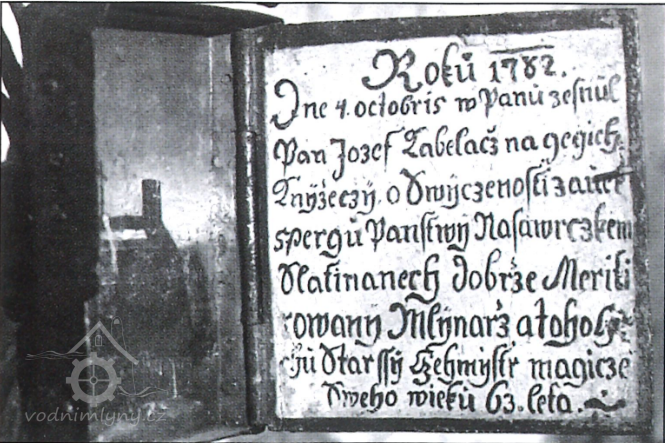 Roků 1782.
Dne 4. octobris w Panu zesnul
Pan Jozef Zabelacž na gegich
Knyžeczý o Swiyczenosti zauer
spergů Panstwý Nasawrczkem
Slatinanech dobrže Meriti
rowaný Mlýnarž a toho
Starssý Czehmystr magicze
Sweho wieku 63. leta.
vodnimlyny.cz